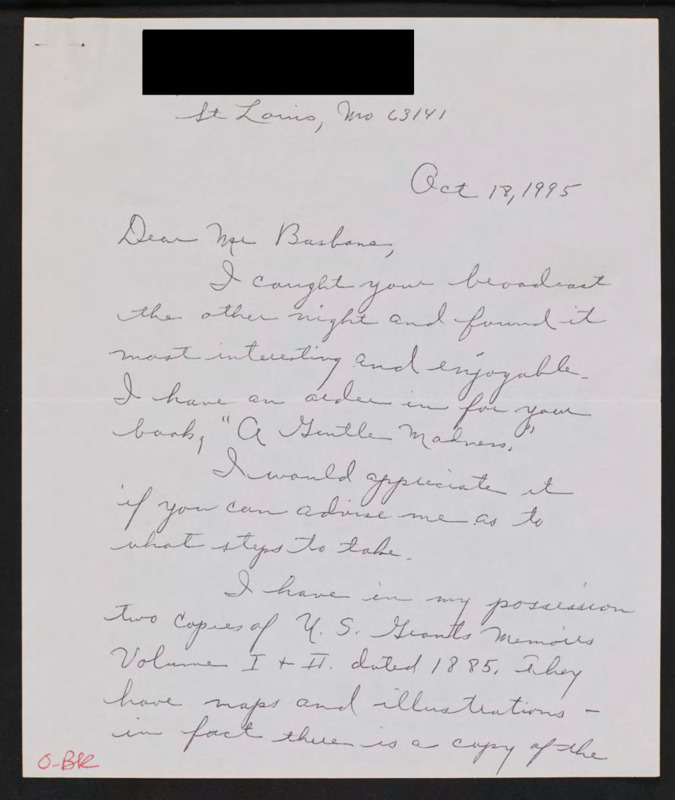 St Louis, Mo 63141
Oct 18, 1995
Dear Mr Basbane,
I caught your broadcast
the other night and found it
most interesting and enjoyable.
I have an order in for your
book, "A Gentle Madness."
I would appreciate it
if you can advise me as to
what steps to take.
I have in my possession
two copies of U. S. Grants Memoirs
Volume I + II. dated 1885. They
have maps and illustrations -
in fact there is a copy of the
O-BR